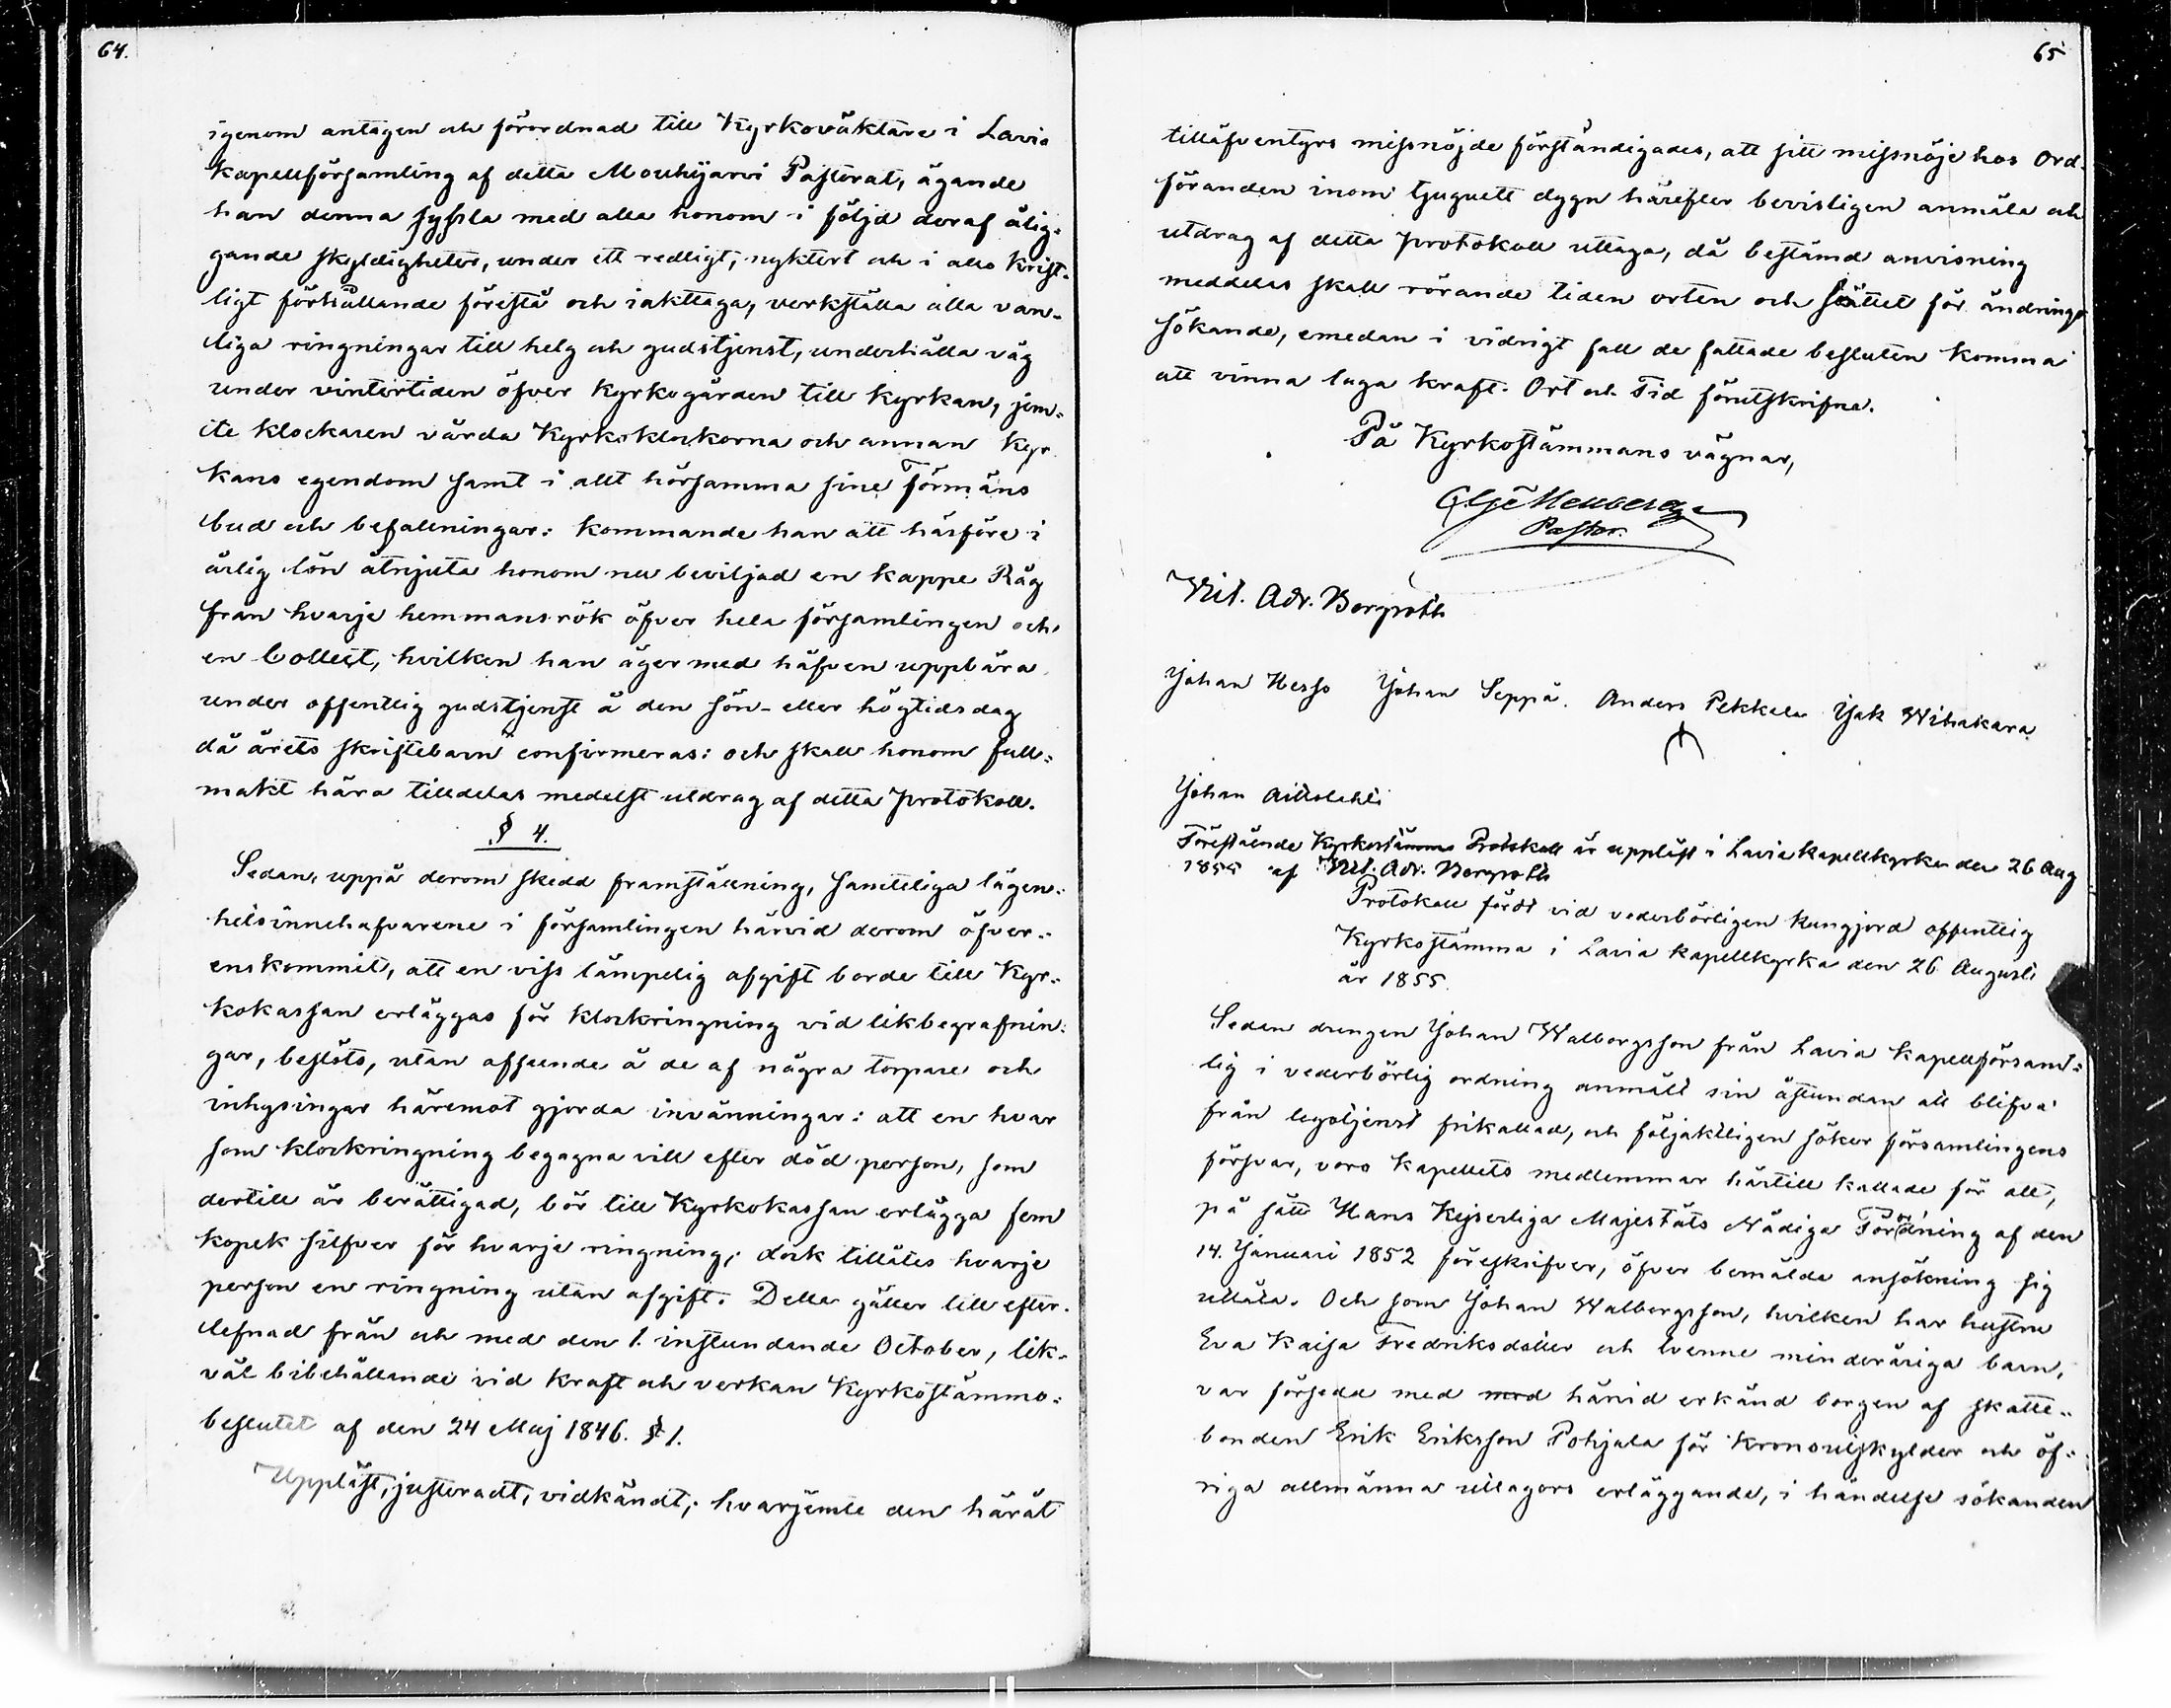 64.
igenom antagen och förordnad till Kyrkoväktare i Lavia
kapellförsamling af detta Mouhijarvi Pastorat, ägande
han denna syssla med alla honom i följd deraf ålig-
gande skyldigheter, under ett redligt, nyktert och i allo krist-
ligt förhållande förestå och iakttaga, verkställa alla van-
liga ringningar till helg och gudstjenst, underhålla väg
under vintertiden öfver kyrkogården till kyrkan, jem-
te klockaren vårda Kyrkoklockorna och annan Kyr
kans egendom samt i allt hörsamma sine Förmäns
bud och befallningar: kommande han att härföre i
årlig lön åtnjuta honom nu beviljad en kappe Råg
från hvarje hemmansrök öfver hela församlingen och
en Collect, hvilken han äger med håfven uppbära
under offentlig gudstjenst å den sön- eller högtidsdag
då årets skriftebarn confirmeras: och skall honom full-
makt håra tilldelas medelst utdrag af detta Protokoll.
§ 4.
Sedan, uppå derom skedd framställning, samtteliga lägen-
hetsinnehafvarene i församlingen härvid derom öfver-
enskommit, att en viss lämpelig afgift borde till Kyr-
kokassan erläggas för klockringning vid likbegrafnin-
gar, beslöts, utan afseende å de af några torpare och
inhysingar häremot gjorda invänningar: att en hvar
som klockringning begagna vill efter död person, som
dertill är berättigad, bör till Kyrkokassan erlägga fem
kopek silfver för hvarje ringning; dock tillåtes hvarje
person en ringning utan afgift. Detta gäller till efter-
lefnad från och med den 1. instundande October, lik-
väl bibehållande vid kraft och verkan Kyrkostämmo-
beslutet af den 24 Maj 1846. § 1.
Uppläst, justeradt, vidkändt; hvarjemte den häråt
65
tilläfventyrs missnöjde förständigades, att sitt missnöje hos Ord-
föranden inom tjuguett dygn härefter bevisligen anmäla och
utdrag af detta Protokoll uttaga, då bestämd anvisning
meddelas skall rörande tiden orten och sättet för ändrings
sökande, emedan i vidrigt fall de fattade besluten komma
att vinna laga kraft. Ort och Tid förutskrifne.
På Kyrkostämmans vägnar,
Pastor.
Vict. Adr. Borgroth
Johan Hesso Johan Seppä. Anders Pekkala Isak Wihakara
Johan
Förestående Kyrkostämmo Protokoll är uppläst i Lavia Kapellkyrka den 26 Aug
1855 af Vict. Adr. Borgroth
Protokoll fördt vid vederbörligen kungjord offentlig
Kyrkostämma i Lavia kapellkyrka den 26 Augusti
år 1855.
Sedan drengen Johan Walborgsson från Lavia kapellförsam-
lig i vederbörlig ordning anmält sin åstundan att blifva
från legotjenst frikallad, och följaktligen söker församlingens
försvar, voro kapellets medlemmar härtill kallade för att,
på sätt Hans Kejserliga Majestäts Nådiga Förordning af den
14. Januari 1852 föreskrifver, öfver bemälde ansökning sig
utlåta. Och som Johan Walborgsson, hvilken har hustru
Eva Kaisa Fredriksdotter och tvenne minderåriga barn,
var försedd med med härvid erkänd borgen af skatte-
bonden Erik Eriksson Pohjala för Kronoutskylder och öf-
riga allmänna utlagors erläggande, i händelse sökanden